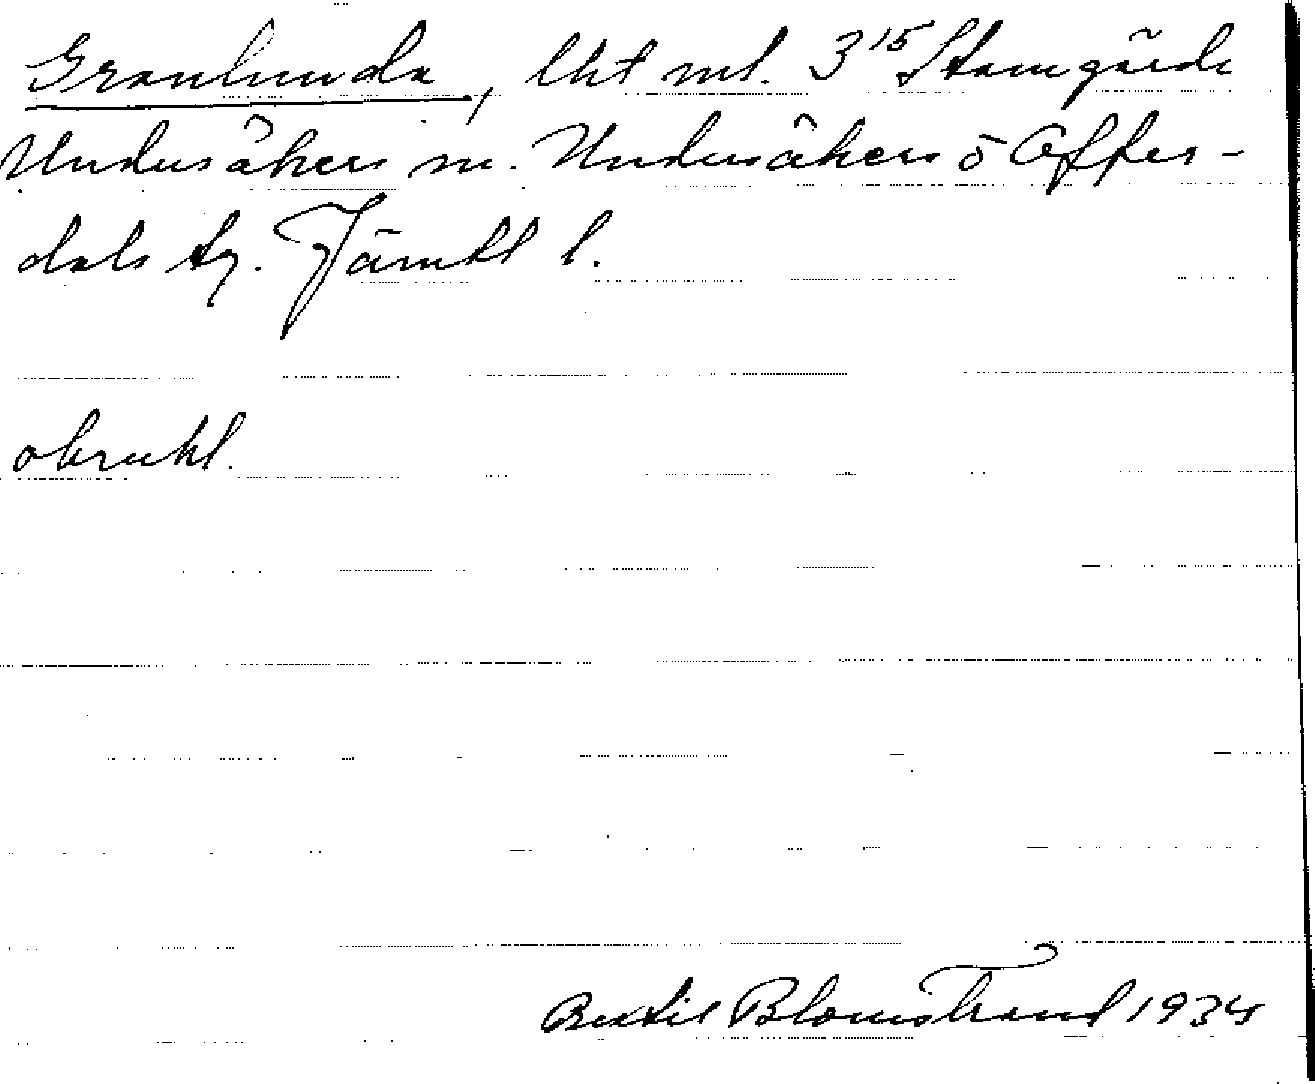 Granlunda, lht ml. 3¹⁵ Stamgärde
Undersåkers sn. Undersåkers o Offer-
dals tg. Jämtl l.
obrukl.
Bertil Blomstrand 1934